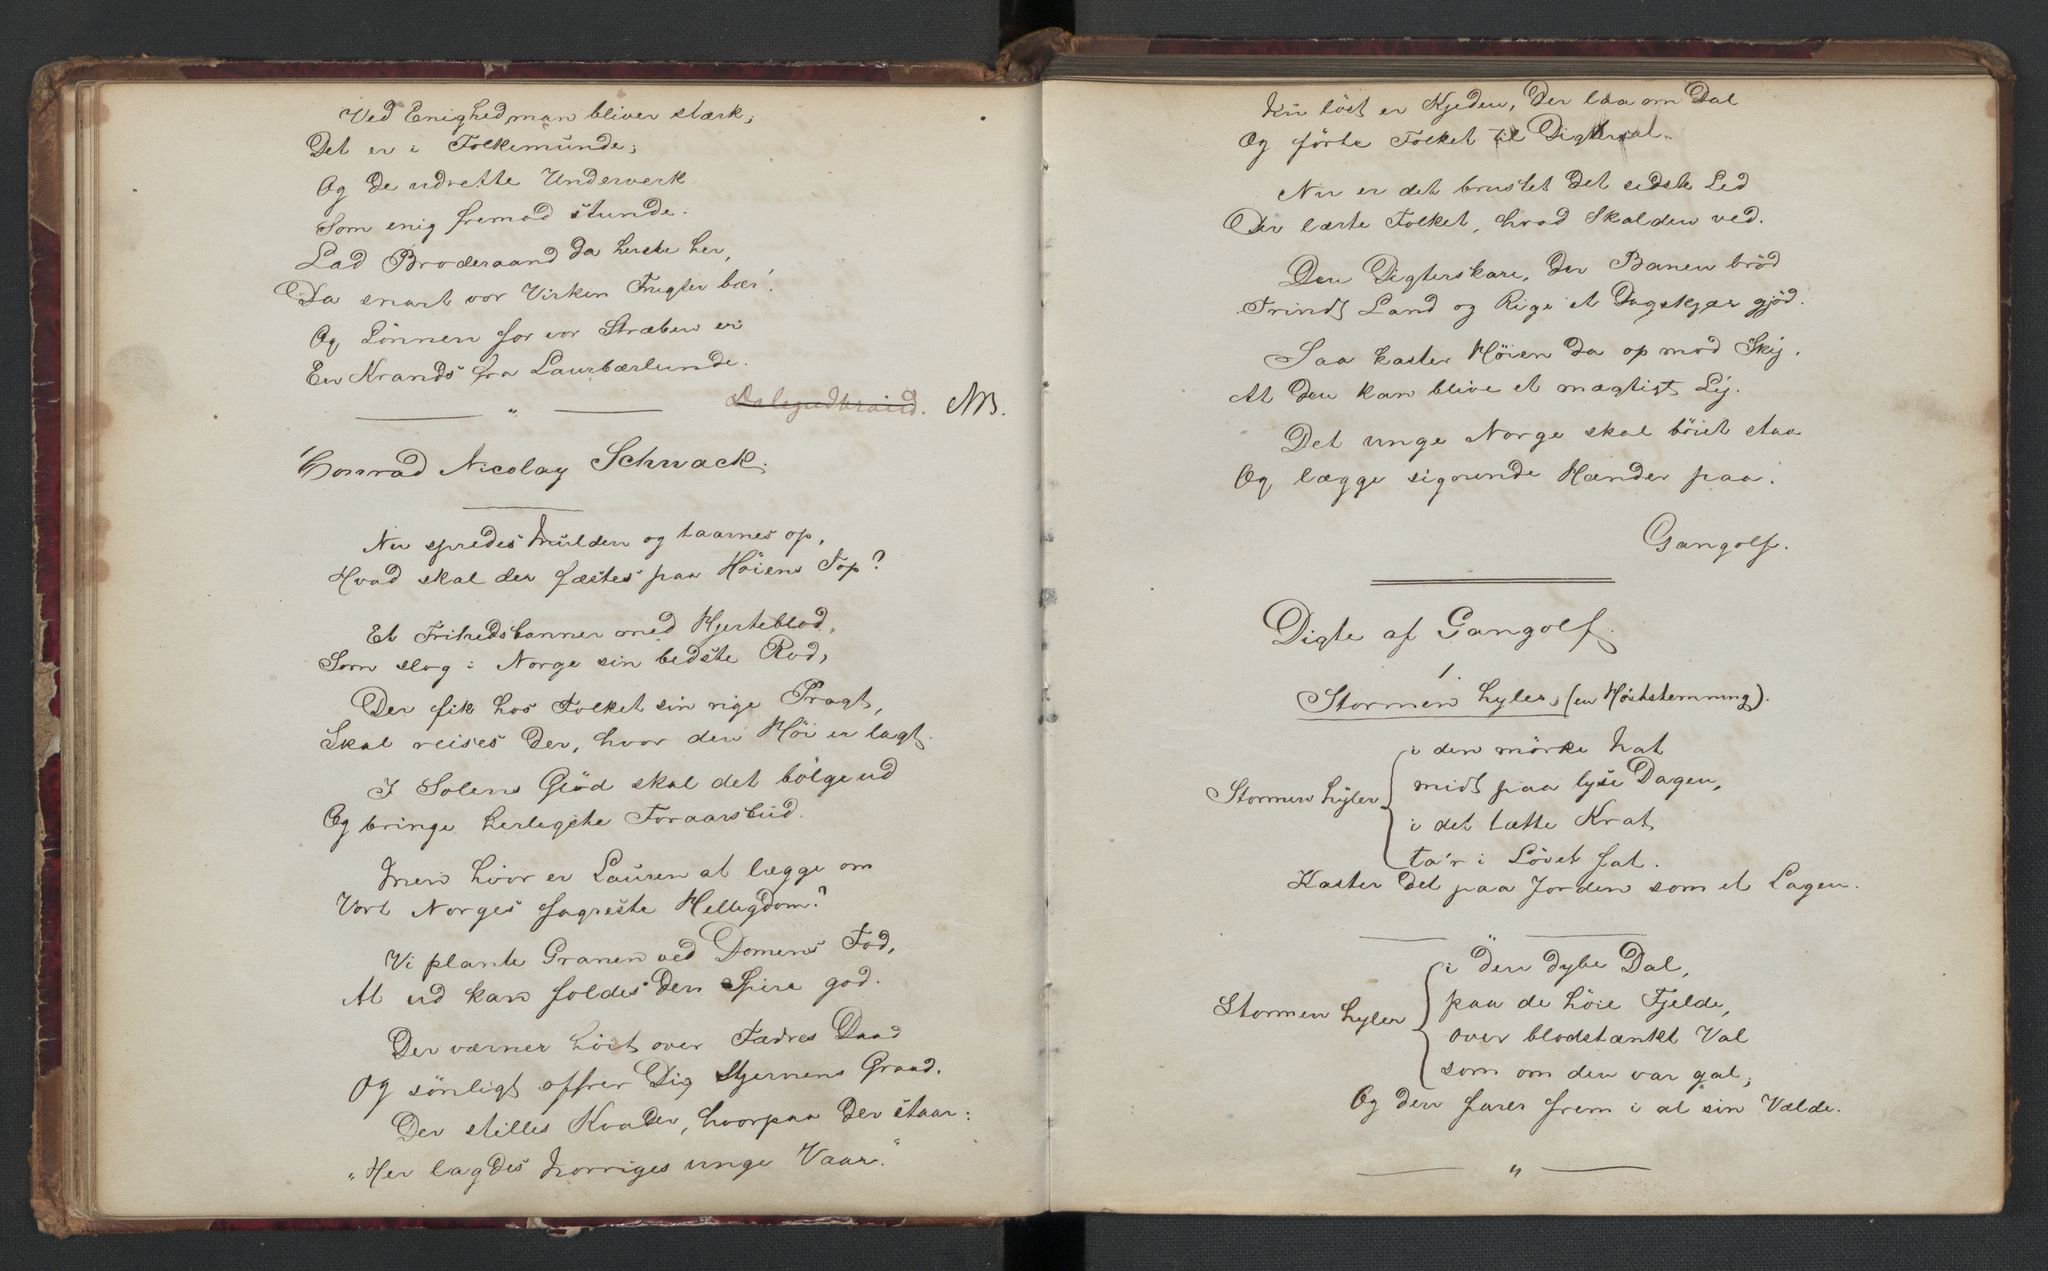 Ved Enighed man bliver stærk,
Det er i Folkemunde;
Og de udrette Underverk
Som enig fremad stunde.
Lad Broderaand da herske her,
Da snart vor Virken Frugter bær!
Og Lönnen for vor Stræben er
En Krands fra Laurbærlunde.
NB.
Conrad Nicolay Schwach.
Nu spredes Mulden og taarnes op,
Hvad skal der fæstes paa Höiens Top?
Et Frihedsbanner med Hjerteblod,
Som slog i Norge sin bedste Rod,
Der fik hos Folket sin rige Pragt,
Skal reises der, hvor den Höi er lagt.
I Solens Glöd skal det bölge ud
Og bringe herligste Foraarsbud.
Men hvor er Lauren at lægge om
Vort Norges fagreste Helligdom?
Vi plante Granen ved Domens Fod,
At ud kan foldes den Spire god.
Der værner höit over Fædres Daad
Og sönligt offrer Dig Stjernens Graad.
Der stilles Kvader, hvorpaa der staar:
"Her lagdes Norriges unge Vaar."
Nu löst er Kjeden, der laa om Dal
Og förte Folket til Digtersal.
Nu er det brustet det sidste Led
Der lærte Folket, hvad Skalden ved.
Den Digterskare, der Banen bröd
Trindt Land og Rige et Dagskjær gjöd.
Saa kaster Höien da op mod Sky,
At den kan blive et mægtigt Ly.
Det unge Norge skal böiet staa
Og lægge signende Hænder paa!
Gangolf.
Digte af Gangolf.
1.
Stormen hyler, (en Höststemning).
i den mörke Nat
midt paa lyse Dagen,
Stormen hyler
i det tætte Krat
ta'r i Lövet fat.
Kaster det paa Jorden som et Lagen.
"
i den dybe Dal,
paa de höie Fjelde,
Stormen hyler
over blodstænkt Val
som om den var gal,
Og den farer frem i al sin Vælde.
"